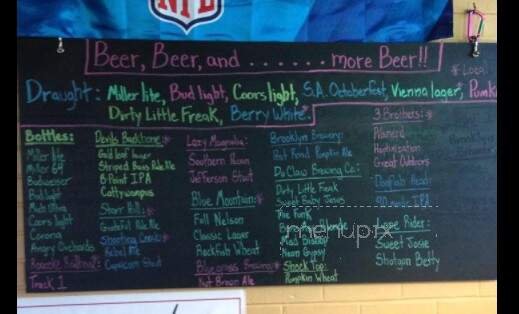 NFL
Beer, Beer, and ....... more Beer!!
* Local
Draught: Miller lite, Bud light, Coors light, S.A. Octoberfest, Vienna lager, Pumk
Dirty Little Freak, Berry White.
Bottles:
Miller lite
Miller 64
Budweiser
Bud light
Coors light
Corona
Angry Orchards
Track 1
Devils Backbone: *
Gold leaf lager
Striped Bass Pale Ale
8 Point IPA
Cattywampus
Starr Hill: *
Grateful Pale Ale
Shooting Creek: *
Rebel Ale
Lazy Magnolia:
Southern Pecan
Jefferson Stout
Blue Mountain: *
Full Nelson
Classic Lager
Rockfish Wheat
Bluegrass Brewing:
Nut Brown Ale
Brooklyn Brewery:
Post Road Pumpkin Ale
Da Claw Brewing Co.:
Dirty Little Freak
Sweet Baby Jesus
The Funk
Blonde
Neon Gypsy
Shock Top:
Pumpkin Wheat
3 Brothers: *
Hoptimization
Great Outdoors
Dogfish Head:
90 minute IPA
Lone Rider:
Sweet Josie
Shotgun Betty
menupix